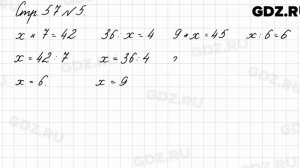 Стр. 57 № 5.
GDZ.RU
x * 7 = 42 36 : x = 4 9 * x = 45 x : 6 = 6
x = 42 : 7 x = 36 : 4
x = 6 x = 9
GDZ.RU